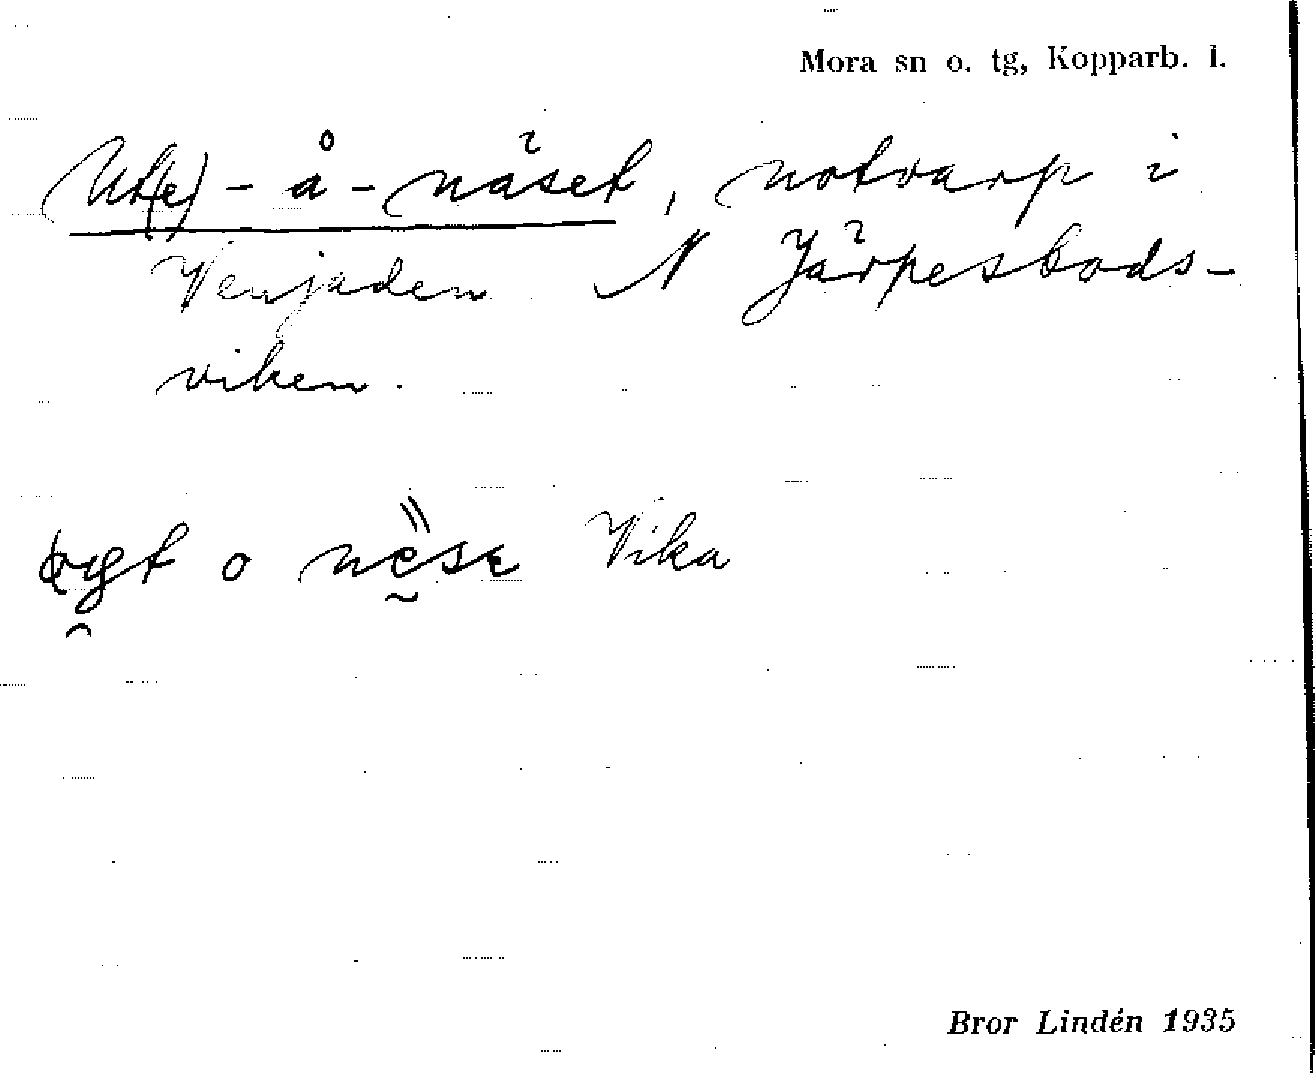 Mora sn o. tg, Kopparb. l.
Ut(e)-å-näset, notvarp i
Venjaden N Järpesbods-
viken.
o nese Vika
Bror Lindén 1935